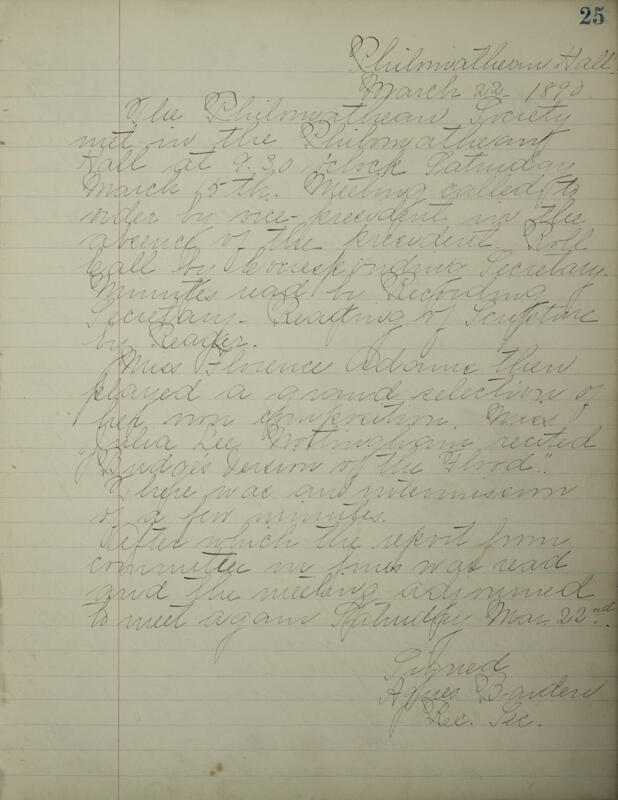 25
Philomathean Hall.
March 22 1890.
The Philomathean Society
met in the Philomathean
Hall at 9.30 o'clock Saturday
March 15th. Meeting called to
order by vice-president in the
absence of the president. Roll
Call by Corresponding Secretary.
Minutes read by Recording
Secretary. Reading of Scripture
by Reader.
Miss Florence Adams then
played a grand selection of
her own composition. Miss
Julia Lee Nottingham recited
"Budge's Version of the Flood".
There was an intermission
of a few minutes.
After which the report from
committee on was read
and the meeting adjourned
to meet again Saturday Mar. 22nd.
Signed
Agnes Barden
Rec. Sec.